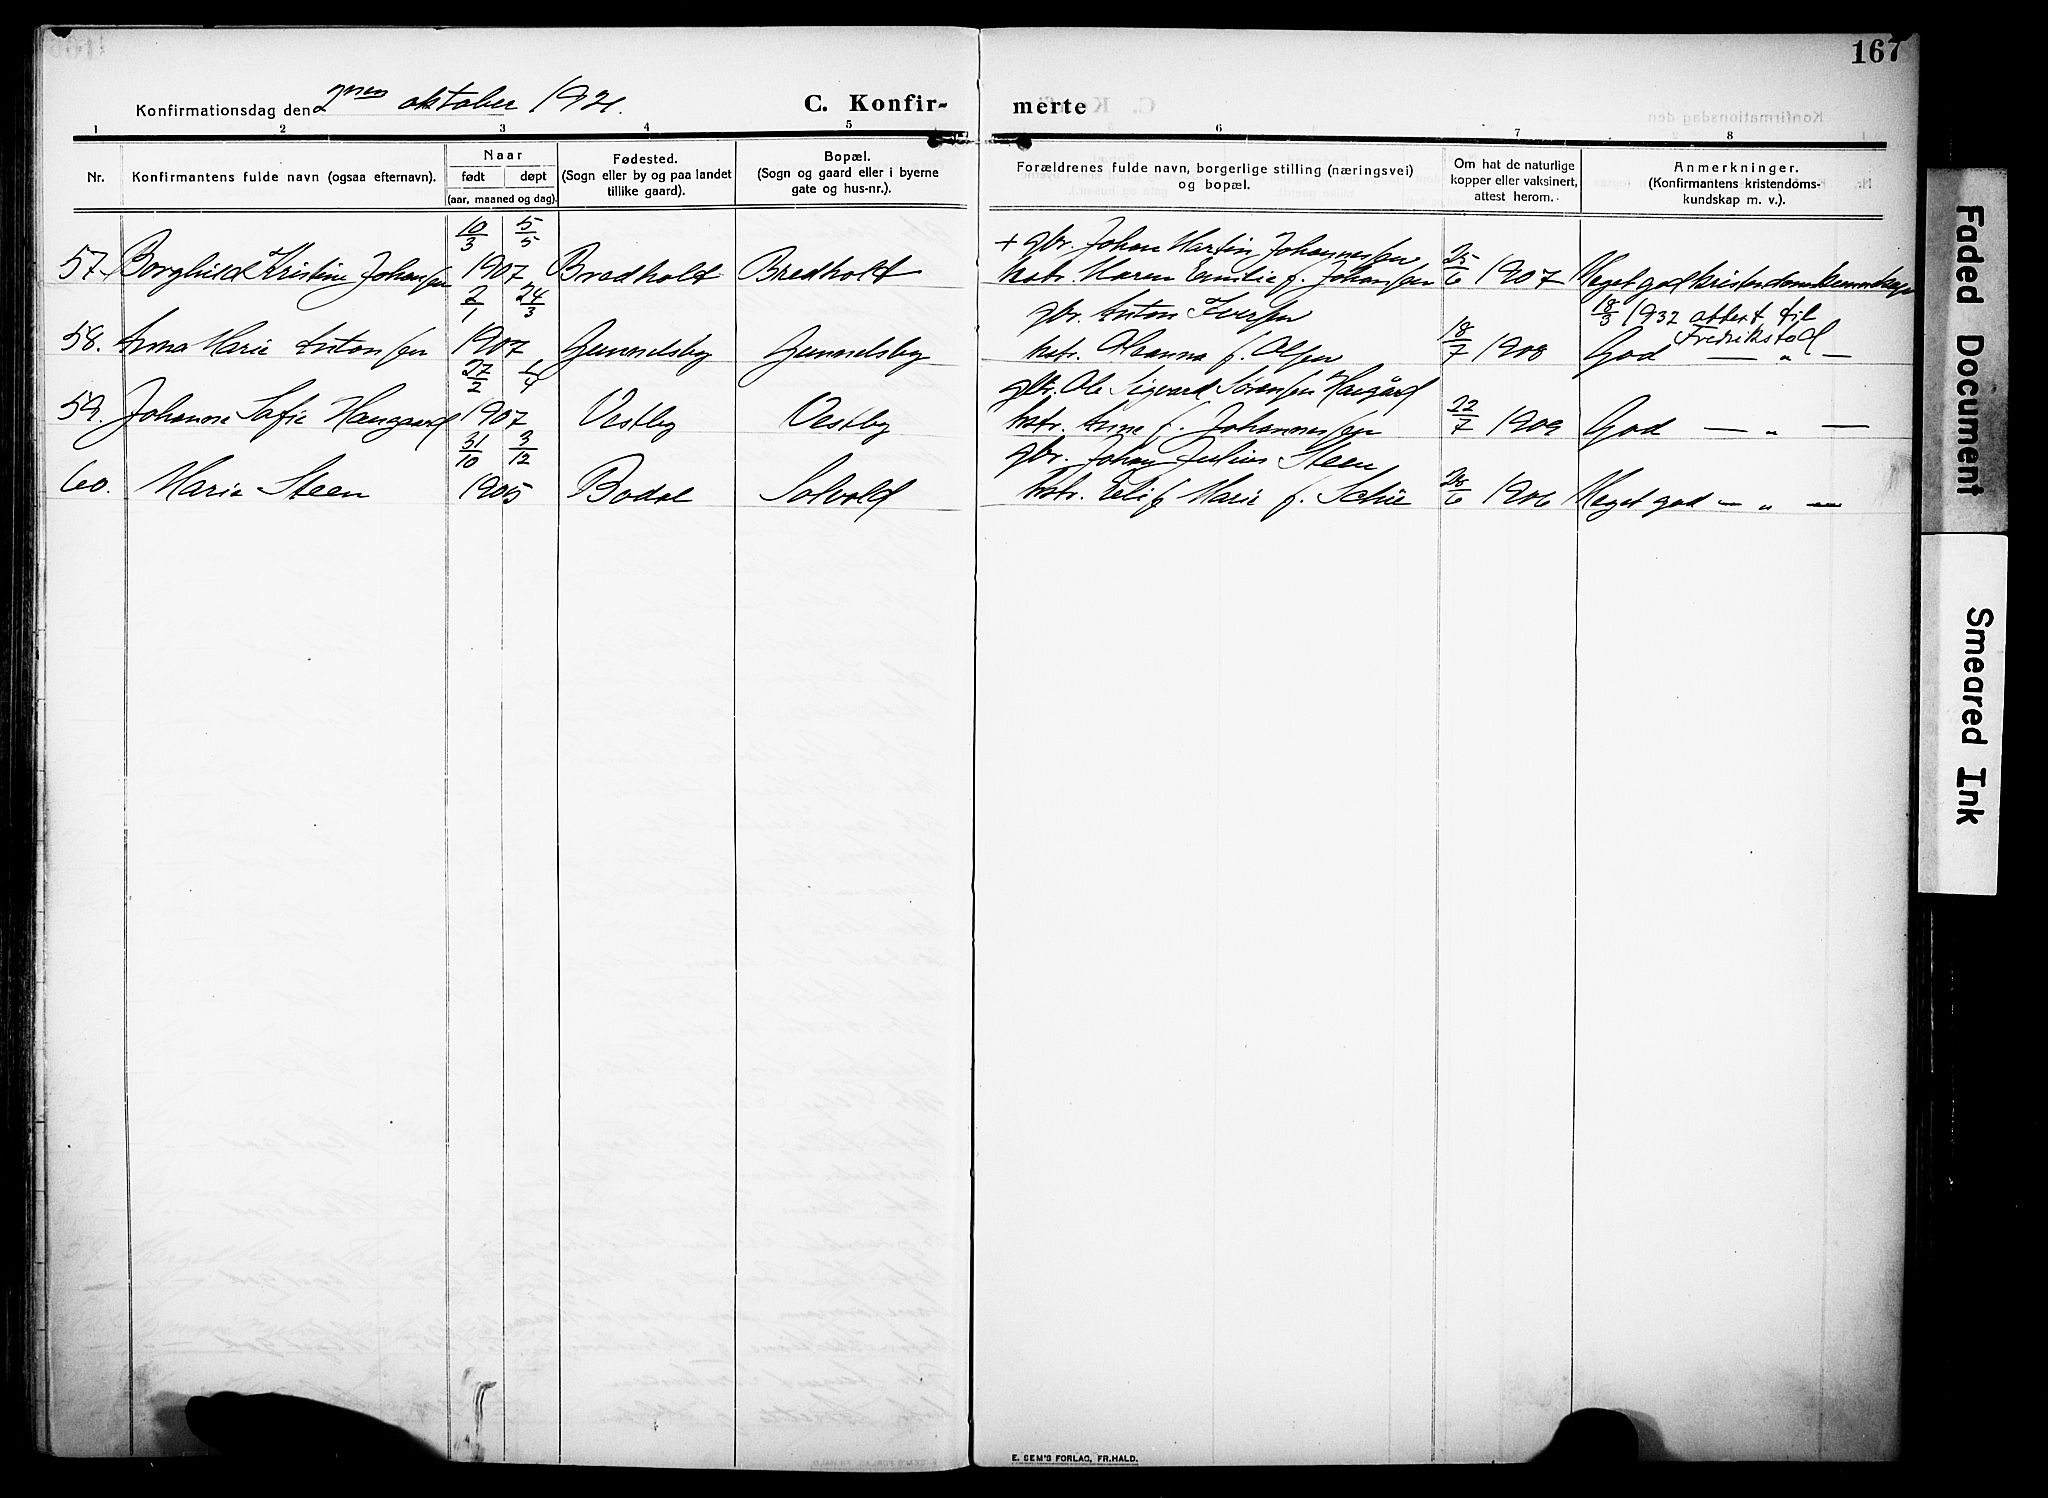 167
Konfirmationsdag den 2nen oktober 1921.
C. Konfirmerte
1 2 3 4 5 6 7 8
Nr.
Konfirmantens fulde navn (ogsaa efternavn).
Naar
født døpt
(aar, maaned og dag).
Fødested.
(Sogn eller by og paa landet
tillike gaard).
Bopæl.
(Sogn og gaard eller i byerne
gate og hus-nr.).
Forældrenes fulde navn, borgerlige stilling (næringsvei)
og bopæl.
Om hat de naturlige
kopper eller vaksinert,
attest herom.
Anmerkninger.
(Konfirmantens kristendoms-
kundskap m. v.).
10/3 5/5 + gbr. Johan Martin Johannessen
57. Borghild Kristine Johansen 1907 Bredholt Bredholt hstr. Maren Emilie f. Johansen 25/6 1907 Meget god kristendomskunnskap
2/1 24/3 gbr. Anton Iversen 18/3 1932 attest til Fredrikstad
58. Anna Marie Antonsen 1907 Gunnelsby Gunnelsby hstr. f. Olsen 18/7 1908 God — „ —
27/2 1/4 gbr. Ole Sigvard Sørensen Haugård
59. Johanne Sofie Haugaard 1907 Vestby Vestby hstr. Anne f. Johannessen 22/7 1909 God — „ —
31/10 3/12 gbr. Johan Julius Steen
60. Marie Steen 1905 Bodal Solvold hstr. Marie f. 28/6 1906 Meget god — „ —
E. SEM'S FORLAG, FR.HALD.
Faded Document
Smeared Ink